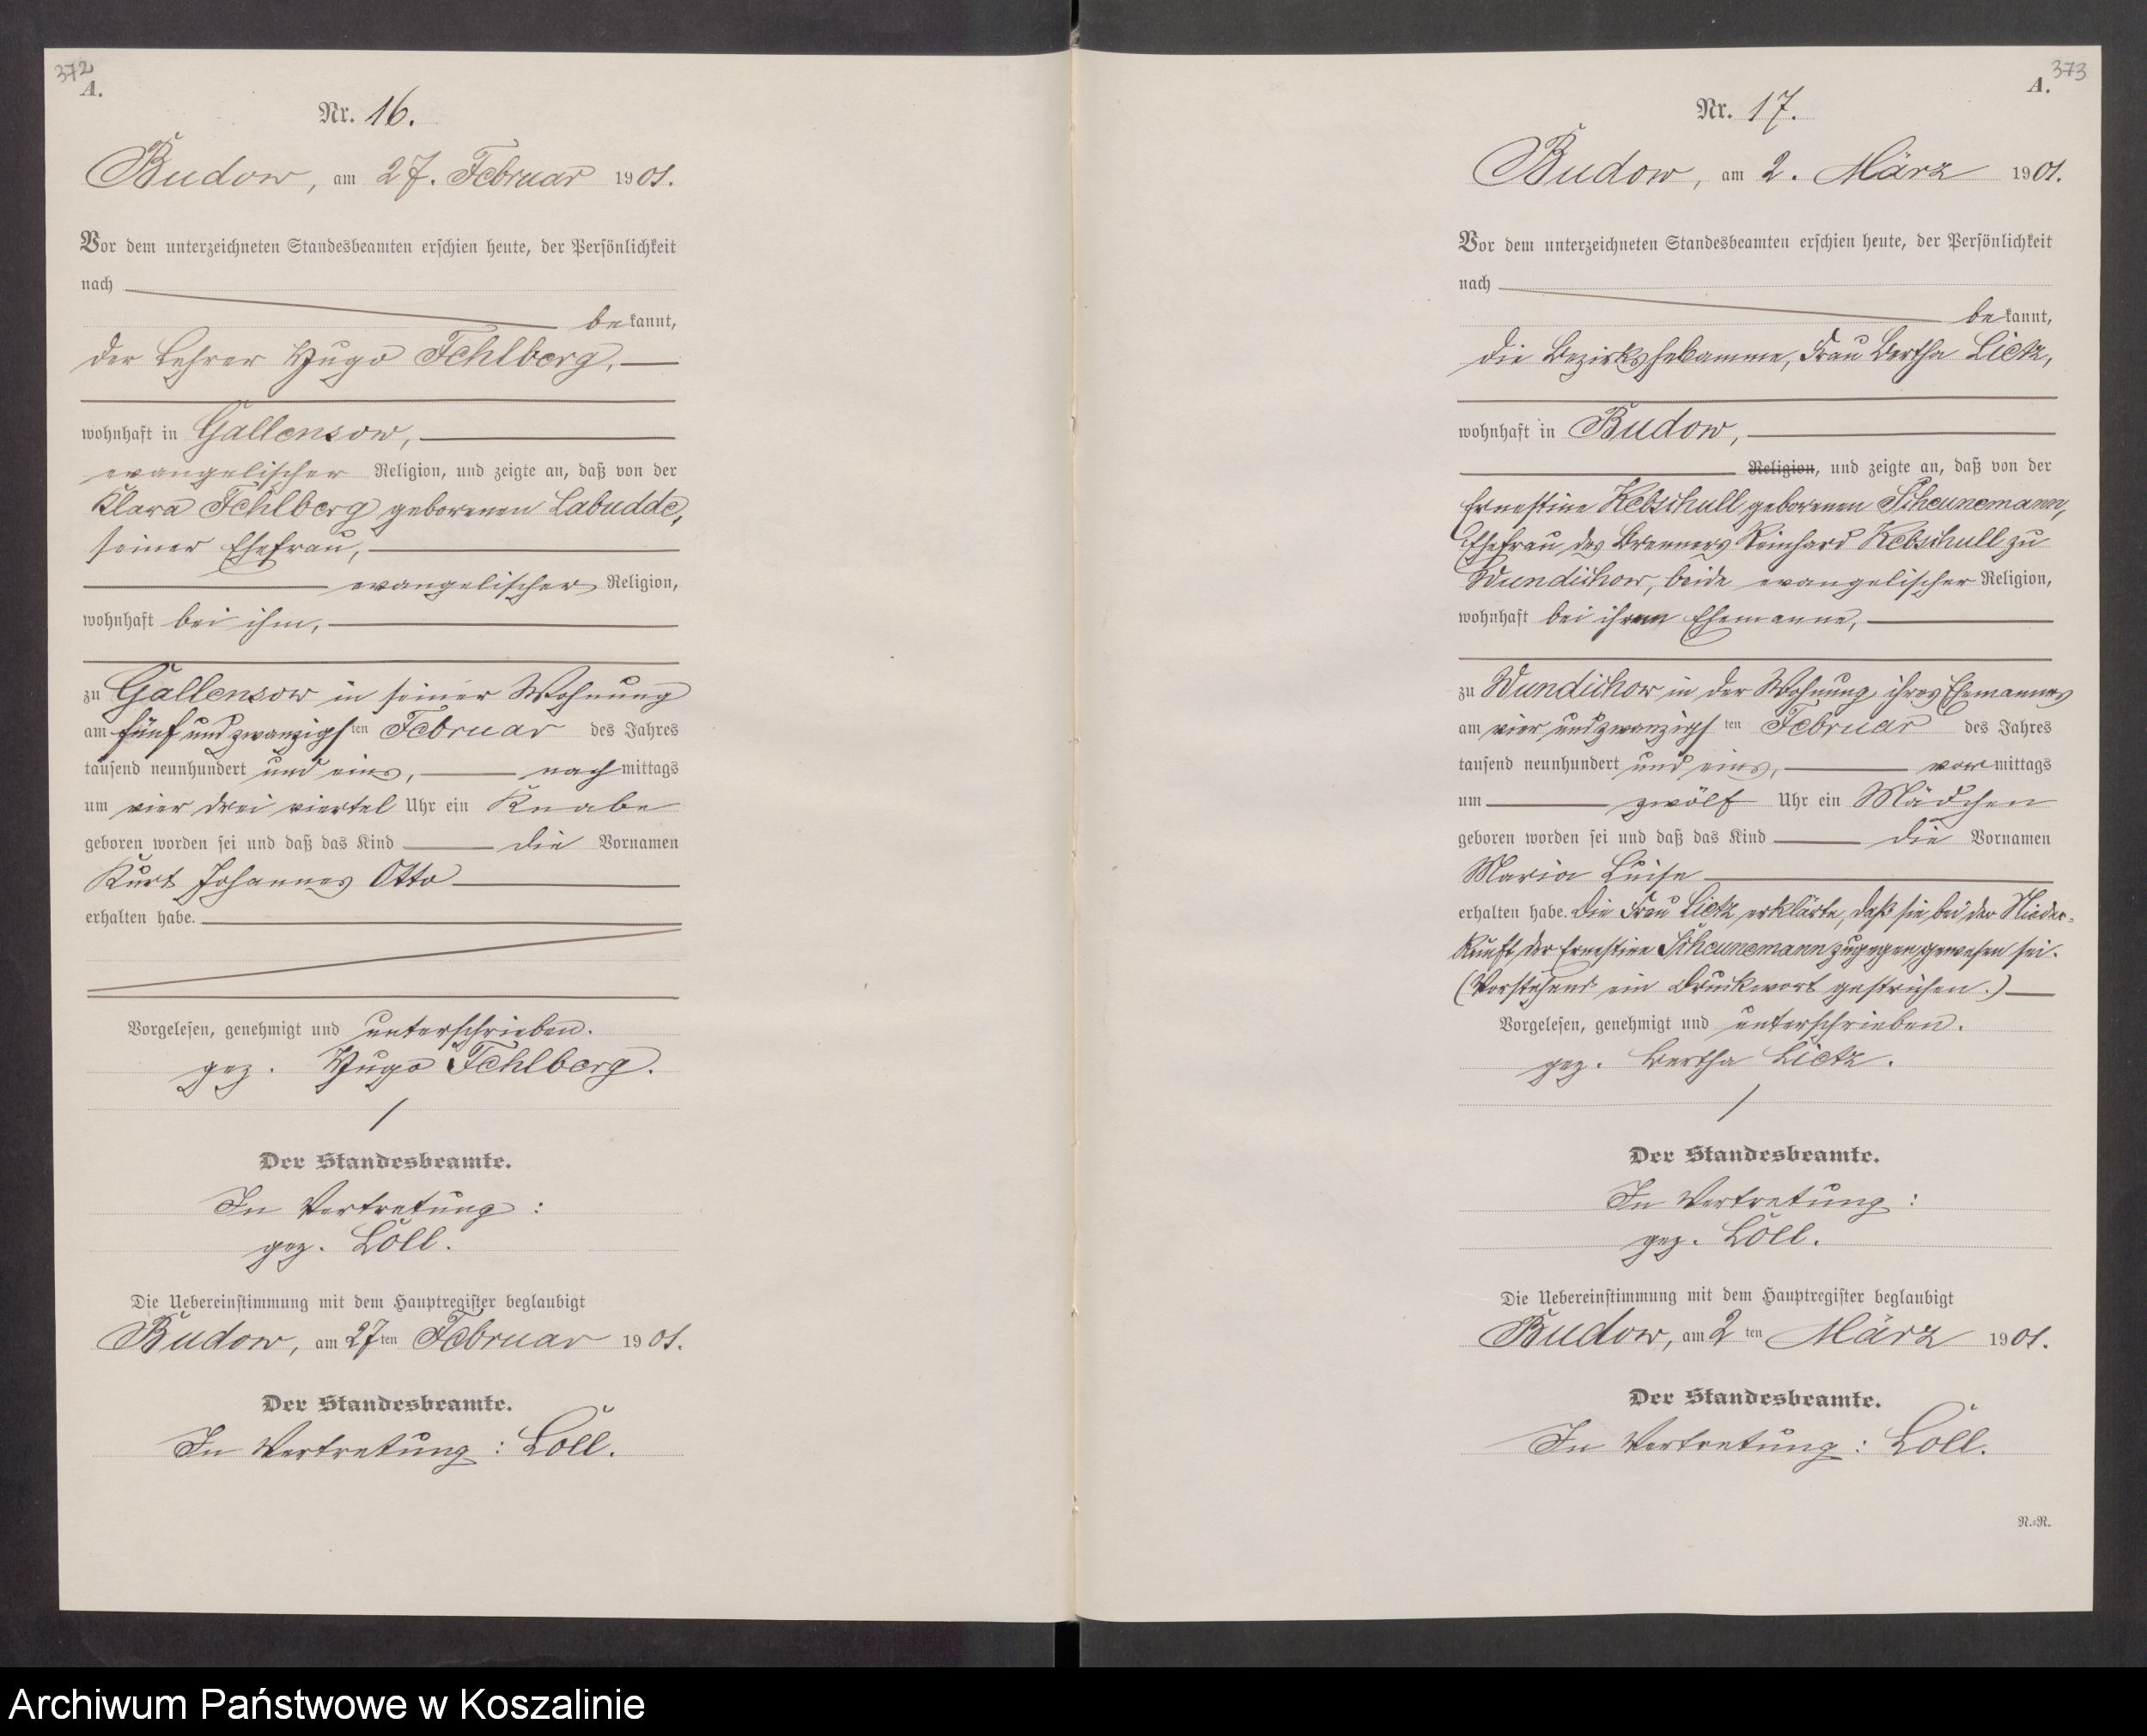 372
A.
Nr. 16.
Budow, am 27. Februar 1901.
Vor dem unterzeichneten Standesbeamten erschien heute, der Persönlichkeit
nach
bekannt,
der Lehrer Hugo Fehlberg,
wohnhaft in Gallensow,
evangelischer Religion, und zeigte an, daß von der
Klara Fehlberg geborenen Labudde,
seiner Ehefrau,
evangelischer Religion,
wohnhaft bei ihm,
zu Gallensow in seiner Wohnung
am fünf und zwanzigsten Februar des Jahres
tausend neunhundert und eins, nachmittags
um vier drei viertel Uhr ein Knabe
geboren worden sei und daß das Kind die Vornamen
Kurt Johannes Otto
erhalten habe.
Vorgelesen, genehmigt und unterschrieben.
gez. Hugo Fehlberg.
Der Standesbeamte.
In Vertretung:
gez. Löll.
Die Uebereinstimmung mit dem Hauptregister beglaubigt
Budow, am 27ten Februar 1901.
Der Standesbeamte.
In Vertretung: Löll.
373
A.
Nr. 17.
Budow, am 2. März 1901.
Vor dem unterzeichneten Standesbeamten erschien heute, der Persönlichkeit
nach
bekannt,
die Bezirkshebamme, Frau Bertha Lietz,
wohnhaft in Budow,
Religion, und zeigte an, daß von der
Ernestine Kebschull geborenen Scheunemann,
Ehefrau des Brenners Reinhard Kebschull zu
Wundichow, beide evangelischer Religion,
wohnhaft bei ihrem Ehemanne,
zu Wundichow in der Wohnung ihres Ehemannes
am vier und zwanzigsten Februar des Jahres
tausend neunhundert und eins, vormittags
um zwölf Uhr ein Mädchen
geboren worden sei und daß das Kind die Vornamen
Maria Luise
erhalten habe. Die Frau Lietz erklärte, daß sie bei der Nieder-
kunft der Ernestine Scheunemann zugegen gewesen sei.
(Vorstehend ein Druckwort gestrichen.)
Vorgelesen, genehmigt und unterschrieben.
gez. Bertha Lietz.
Der Standesbeamte.
In Vertretung:
gez. Löll.
Die Uebereinstimmung mit dem Hauptregister beglaubigt
Budow, am 2ten März 1901.
Der Standesbeamte.
In Vertretung: Löll.
N.-N.
Archiwum Państwowe w Koszalinie